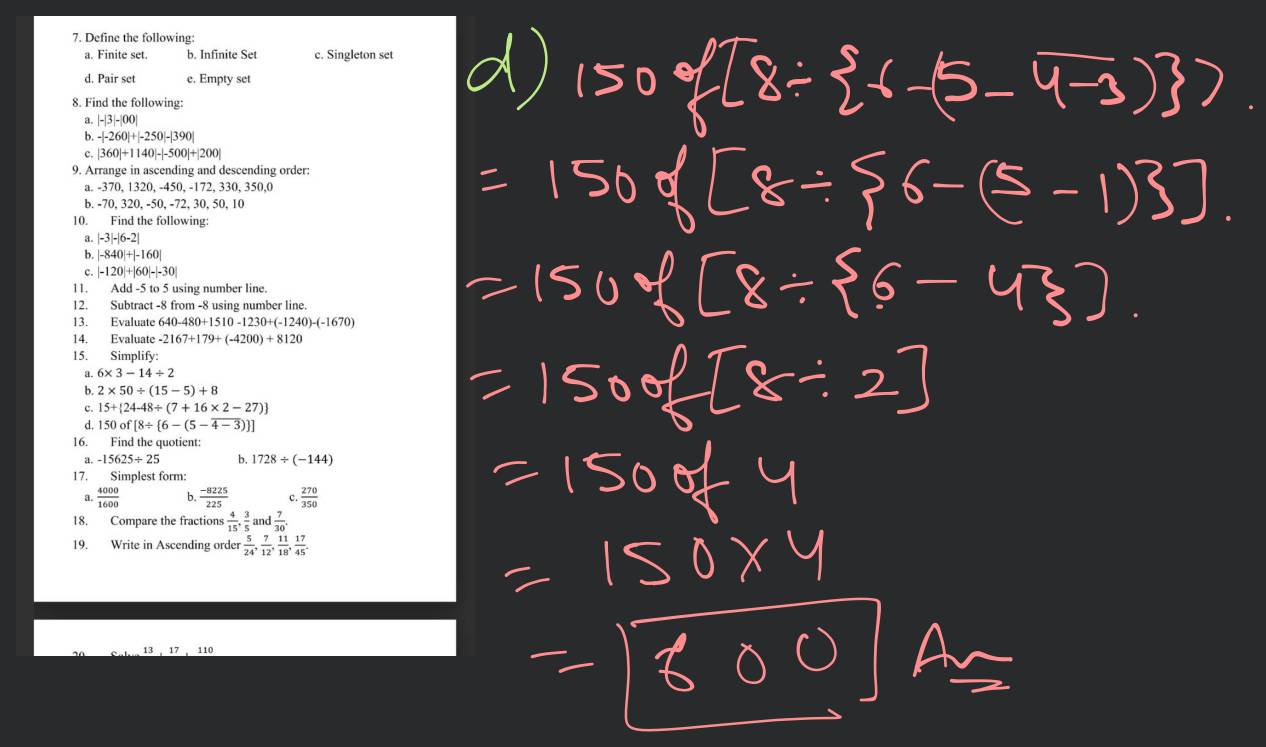 7. Define the following:
a. Finite set. b. Infinite Set c. Singleton set
d. Pair set e. Empty set
8. Find the following:
a. |-|3|-|00|
b. -|-260|+|-250|-|390|
c. |360|+1140|-|-500|+|200|
9. Arrange in ascending and descending order:
a. -370, 1320, -450, -172, 330, 350,0
b. -70, 320, -50, -72, 30, 50, 10
10. Find the following:
a. |-3|-|6-2|
b. |-840|+|-160|
c. |-120|+|60|-|-30|
11. Add -5 to 5 using number line.
12. Subtract -8 from -8 using number line.
13. Evaluate 640-480+1510 -1230+(-1240)-(-1670)
14. Evaluate -2167+179+ (-4200) + 8120
15. Simplify:
a. 6× 3 − 14 ÷ 2
b. 2 × 50 ÷ (15 − 5) + 8
c. 15+{24-48÷ (7 + 16 × 2 − 27)}
d. 150 of [8÷ {6 − (5 − 4̅ ̅−̅ ̅3̅)}]
16. Find the quotient:
a. -15625÷ 25 b. 1728 ÷ (−144)
17. Simplest form:
a. 4000/1600 b. −8225/225 c. 270/350
18. Compare the fractions 4/15, 3/5 and 7/30.
19. Write in Ascending order 5/24, 7/12, 11/18, 17/45.
13 17 110
d) 150 of [8÷{6-(5-4̅-̅3̅)}].
= 150 of [8÷{6-(5-1)}].
= 150 of [8÷{6-4}].
= 150 of [8÷2]
= 150 of 4
= 150×4
= 600 Ans